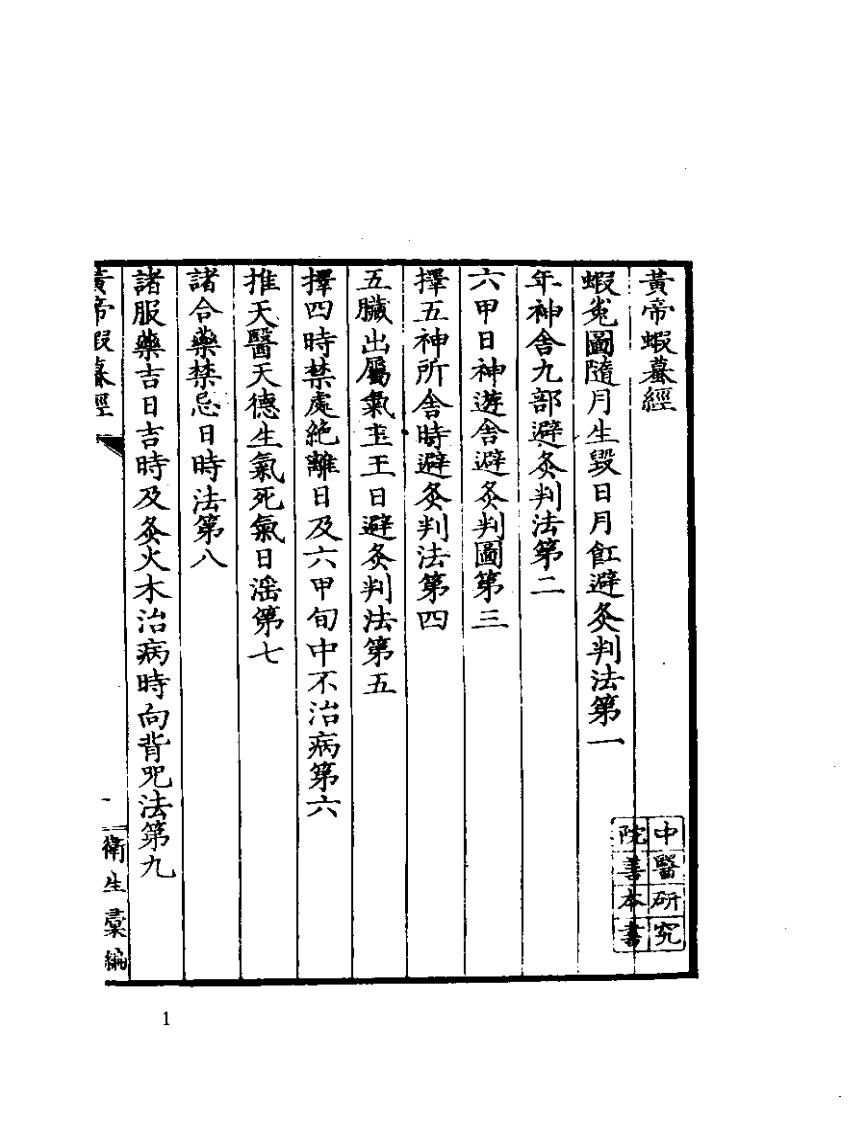 黃帝蝦蟇經
蝦兎圖隨月生毀日月飷避灸判法第一
年神舍九部避灸判法第二
六甲日神遊舍避灸判圖第三
擇五神所舍時避灸判法第四
五臟出屬氣主王日避灸判法第五
擇四時禁處絶離日及六甲旬中不治病第六
推天醫天德生氣死氣日滛第七
諸合藥禁忌日時法第八
諸服藥吉日吉時及灸火木治病時向背咒法第九
黃帝蝦蟇經
一
衛生彙編
中醫研究
院善本書
1